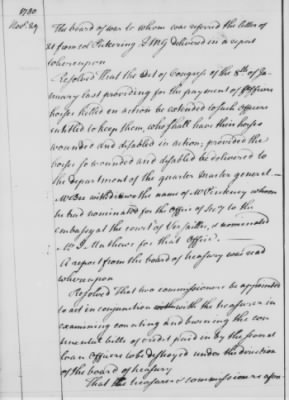 1780
Novr. 29
The board of war to whom was referred the letter of
21 from col Pickering Q M G delivered in a report
whereupon
Resolved That the Act of Congress of the 8th of Ja-
nuary last providing for the payment of officers
horses killed in action be extended to such officers
intitled to keep them, who shall have their horses
wounded and disabled in action; provided the
horses so wounded and disabled be delivered to
the department of the quarter master general.—
Mr Bee withdrew the name of Mr Pinckney whom
he had nominated for the Office of Secy to the
embassy at the court of Versailles, & nominated
Mr J. Mathews for that Office
A report from the board of treasury was read
whereupon
Resolved That two commissioners be appointed
to act in conjunction with the treasurer in
examining counting and burning the con-
tinental bills of credit paid in by the several
loan officers to be destroyed under the direction
of the board of treasury
That the treasurer & commissioners